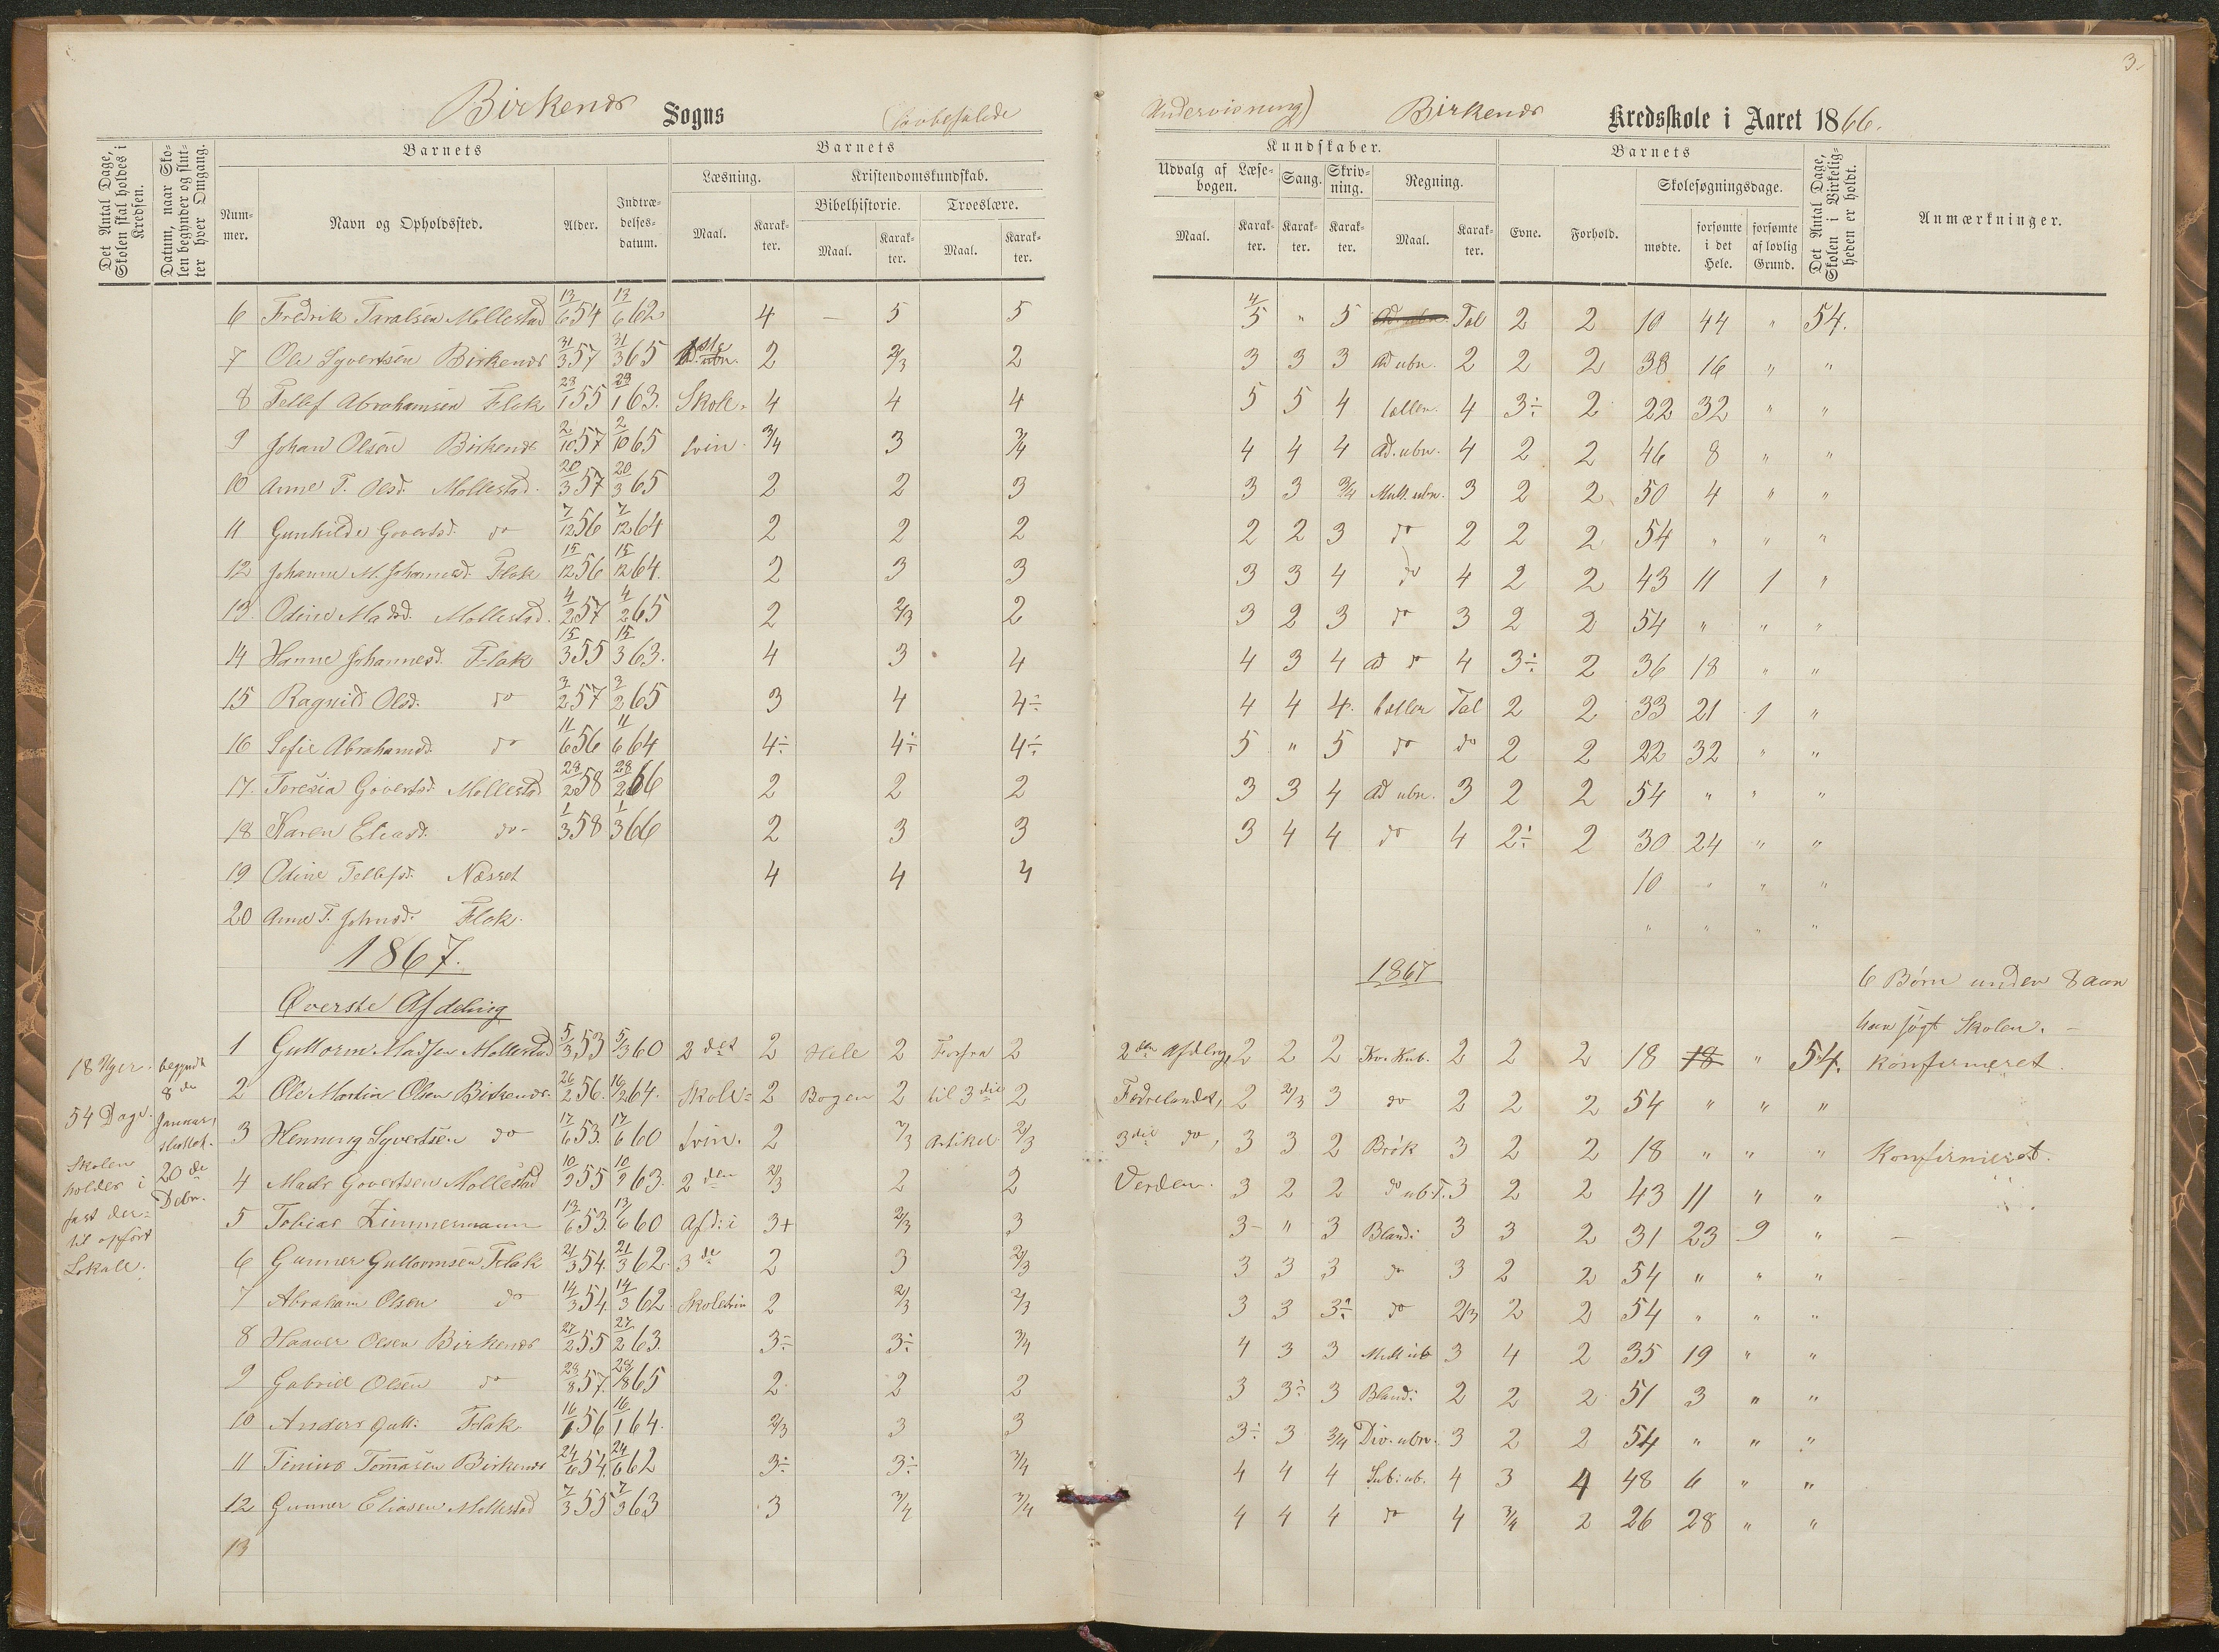 3.
Birkenæs Sogns (lovbefalede Undervisning) Birkenæs Kredsskole i Aaret 1866.
Det Antal Dage, Skolen skal holdes i Kredsen.
Datum, naar Skolen begynder og slutter hver Omgang.
Barnets
Nummer.
Navn og Opholdssted.
Alder.
Indtrædelsesdatum.
Barnets
Læsning.
Maal.
Karakter.
Kristendomskundskab.
Bibelhistorie.
Maal.
Karakter.
Troeslære.
Maal.
Karakter.
Kundskaber.
Udvalg af Læsebogen.
Maal.
Karakter.
Sang.
Karakter.
Skrivning.
Karakter.
Regning.
Maal.
Karakter.
Barnets
Evne.
Forhold.
Skolesøgningsdage.
mødte.
forsømte i det Hele.
forsømte af lovlig Grund.
Det Antal Dage, Skolen i Virkeligheden er holdt.
Anmærkninger.
6 Fredrik Taralsen Mollestad 13/6 54 13/6 62 4 — 5 5 4/5 " 5 Tal 2 2 10 44 " 54.
7 Ole Syvertsen Birkenæs 31/3 57 31/3 65 2 2/3 2 3 3 3 Ad ubn. 2 2 2 38 16 " "
8 Tellef Abrahamsen Flak 23/1 55 163. Skole- 4 4 4 5 5 4 4 3÷ 2 22 32 " "
9 Johan Olsen Birkenæs 2/10 57 2/10 65 trin 3/4 3 3/4 4 4 4 Ad. ubn. 4 2 2 46 8 " "
10 Anne T. Olsd. Mollestad. 20/3 57 20/3 65 2 2 3 3 3 3/4 Mult. ubn. 3 2 2 50 4 " "
11 Gunhilde Govertsd. do 7/12 56 7/12 64 2 2 2 2 2 3 do 2 2 2 54 " " "
12 Johanne M. Johannesd. Flak 15/12 56 15/12 64. 2 3 3 3 3 4 do 4 2 2 43 11 1 "
13. Odine Madsd. Mollestad. 4/2 57 4/2 65 2 2/3 2 3 2 3 do 3 2 2 54 " " "
14 Hanne Johannesd. Flak 15/3 55 15/3 63. 4 3 4 4 3 4 Ad do 4 3÷ 2 36 18 " "
15 Ragnild Olsd. do 3/2 57 3/2 65 3 4 4÷ 4 4 4. Tal 2 2 33 21 1 "
16 Sofie Abrahamsd. do 11/6 56 11/6 64 4÷ 4÷ 4÷ 5 " 5 do do 2 2 22 32 " "
17. Teresia Govertsd. Mollestad 28/2 58 28/2 66 2 2 2 3 3 4 Ad ubn. 3 2 2 54 " " "
18 Karen Eliasd. do 1/3 58 1/3 66 2 3 3 3 4 4 do 4 2÷ 2 30 24 " "
19 Odine Tellefsd. Næsset 4 4 4 10 " " "
20 Anne T. Johnsd. Flak. " " " "
1867.
1867
6 Børn under 8 aar
har søgt Skolen. –
Øverste Afdeling
18 Uger. 54 Dage. Skolen holdes i fast dertil opført Lokale.
begyndt 8de Januar, sluttet. 20de Debr.
1 Guttorm Madsen Mollestad 5/3 53 5/3 60 2det 2 Hele 2 Forfra 2 2den Afdeling, 2 2 2 2 2 2 18 18 " 54. Konfirmeret.
2 Ole Martin Olsen Birkenæs. 26/2 56. 64. Skole= 2 Bogen 2 til 3die 2 Fedrelandet, 2 2/3 3 do 2 2 2 54 " " "
3 Henning Syvertsen do 17/6 53. 17/6 60 trin. 2 2/3 Artikel 2/3 3die do, 3 3 2 Brøk 3 2 2 18 " " " Konfirmeret.
4 Mads Govertsen Mollestad 10/2 55 10/2 63. 2den 2/3 2 2 Verden. 3 2 2 do ub.T. 3 2 2 43 11 " "
5 Tobias Zimmermann 13/6 53. 13/6 60 Afd: i 3+ 2/3 3 3- " 3 Bland: 3 3 2 31 23 9 " –
6 Gunner Guttormsen Flak 21/3 54. 21/3 62. 3de 2 3 2/3 3 3 3 do 3 2 2 54 " " "
7 Abraham Olsen do 14/3 54. 14/3 62 Skoletrin 2 2/3 2/3 3 3 3÷ do 2/3 2 2 54 " " "
8 Haaver Olsen Birkenæs 27/2 55 27/2 63. 3÷ 3÷ 3/4 4 3 3 Mult ub 3 4 2 35 19 " "
9 Gabriel Olsen do 28/8 57. 28/8 65 2 2 2 3 3÷ 3 Bland: 2 2 2 51 3 " "
10 Anders Gutt: Flak 16/1 56 16/1 64. 2/3 3 3 3÷ 3 3/4 Div. ubn. 3 2 2 54 " " "
11 Tinius Tomasen Birkenæs 24/6 54. 24/6 62 3÷ 3÷ 3/4 4 4 4 Sub: ub. 4 3 4 48 6 " "
12 Gunner Eliasen Mollestad 7/3 55 7/3 63 3 3/4 3/4 4 4 4 do 4 3/4 2 26 28 " "
13